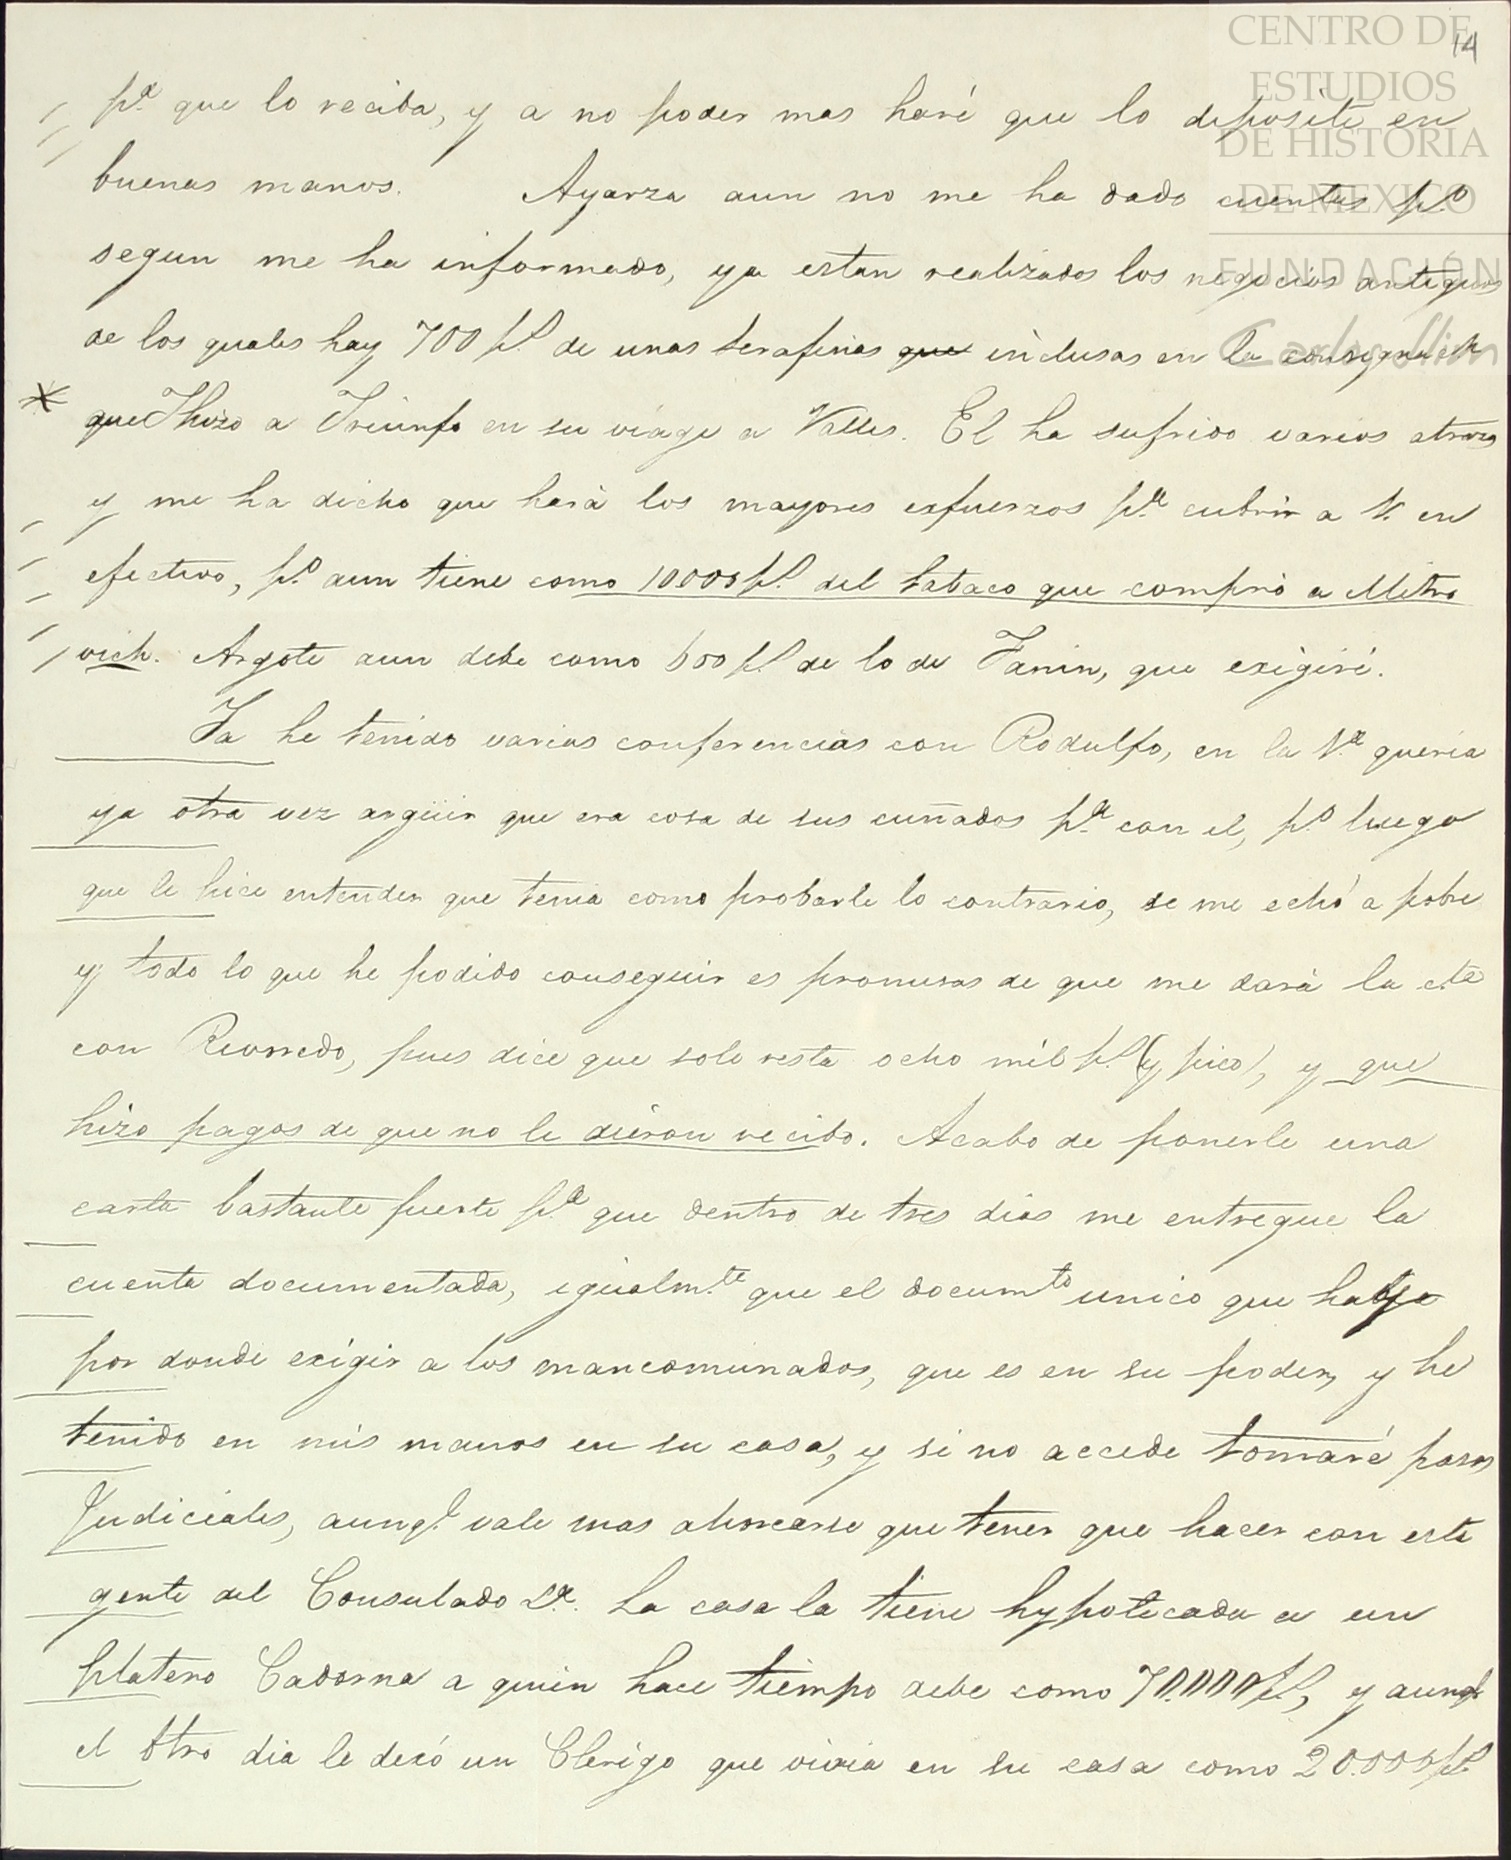 CENTRO DE
ESTUDIOS
DE HISTORIA
DE MEXICO
FUNDACIÓN
Carlos Slim
14
pª que lo reciba, y a no poder mas haré que lo deposite en
buenas manos. Ayarza aun no me ha dado cuentas pº
segun me ha informado, ya estan realizados los negocios antiguos
de los quales hay 700 p.s de unas serafinas que inclusas en la
que hizo a Triunfo en su viage a Valles. El ha sufrido varios atrazos
y me ha dicho que hará los mayores esfuerzos pª cubrir a V. en
efectivo, pº aun tiene como 10.000 p.s del tabaco que compró a Mitro
vich. Argote aun debe como 600 p.s de lo de Fanin, que exigiré.
Ya he tenido varias conferencias con Rodulfo, en la 1ª queria
ya otra vez argüir que era cosa de sus cuñados pª con el, pº luego
que le hice entender que tenia como probarle lo contrario, se me echó a pobre
y todo lo que he podido conseguir es promesas de que me dará la cta
con Revorredo, pues dice que solo resta ocho mil p.s (y pico), y que
hizo pagos de que no le dieron recibo. Acabo de ponerle una
carta bastante fuerte pª que dentro de tres dias me entregue la
cuenta documentada, igualm.te que el documto unico que haya
por donde exigir a los mancomunados, que es en su poder, y he
tenido en mis manos en su casa, y si no accede tomaré pasos
Judiciales, aunq.e vale mas ahorcarse que tener que hacer con esta
gente del Consulado Rª. La casa la tiene hypotecada a un
platero Cadorna a quien hace tiempo debe como 70.000 p.s, y aunqe
el otro dia le dexó un Clerigo que vivia en su casa como 20.000 p.s